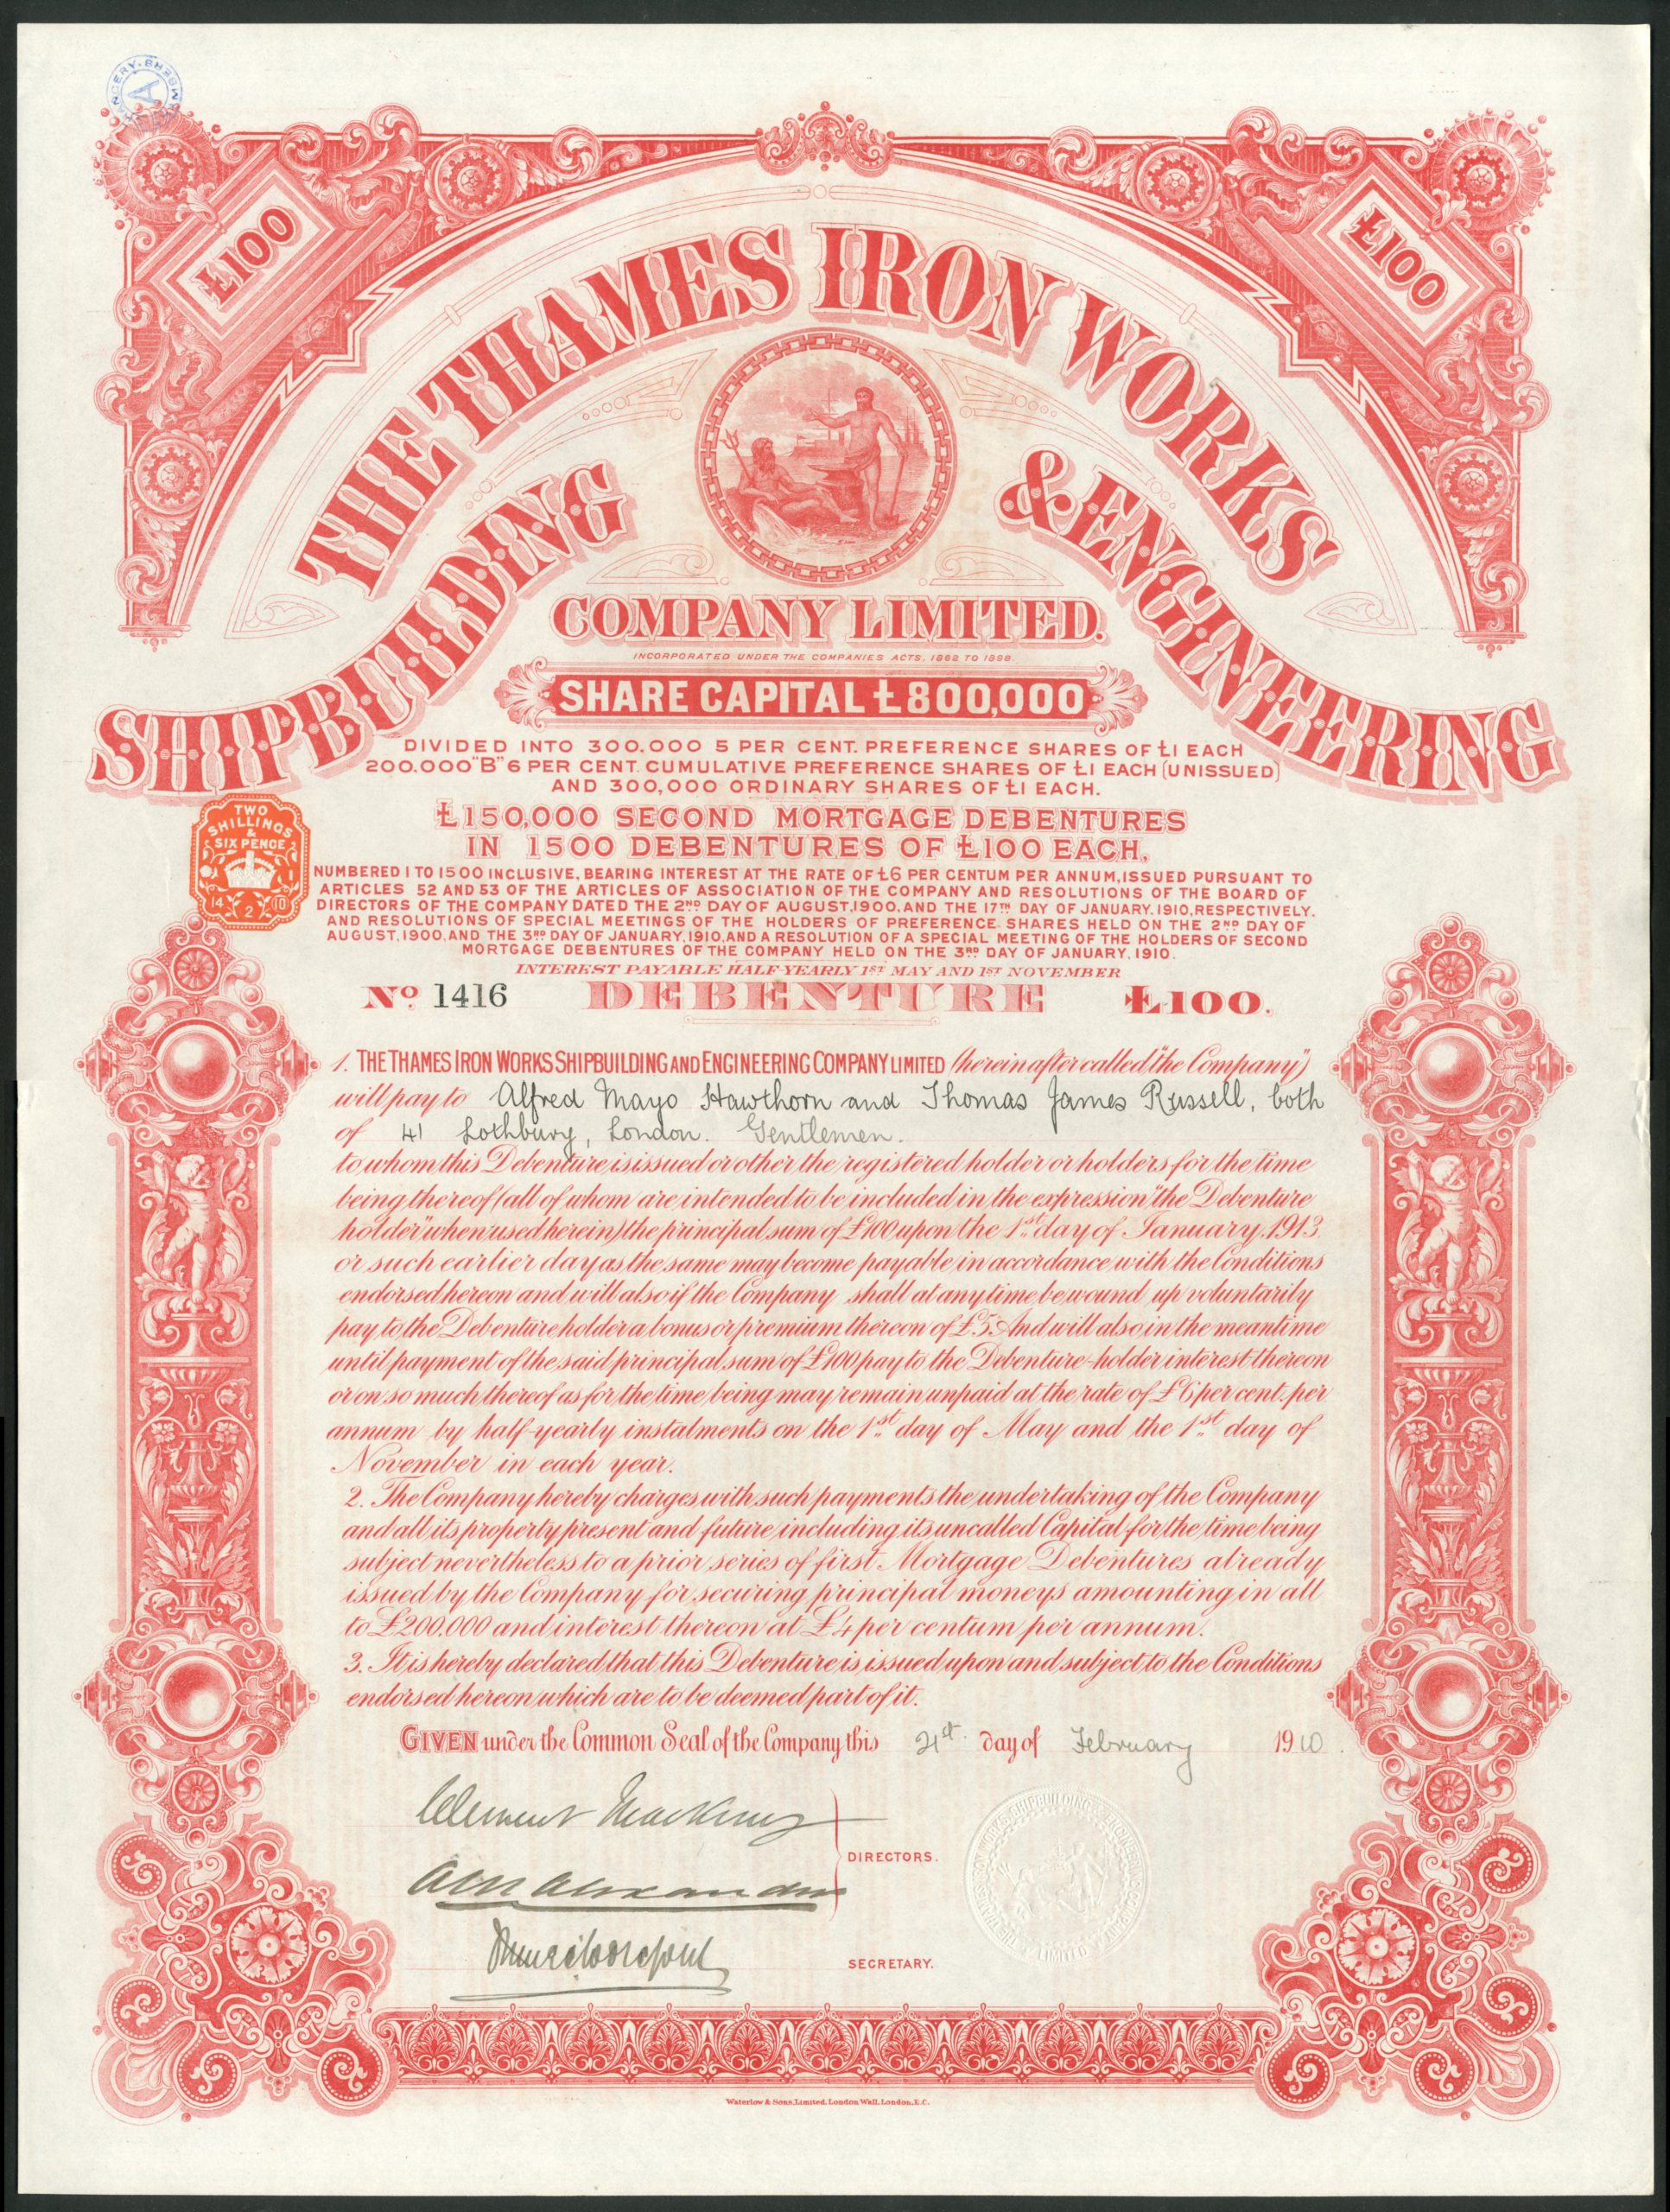 CHANCERY·CHAMBERS
A
£100
£100
THE THAMES IRON WORKS
SHIPBUILDING & ENGINEERING
COMPANY LIMITED.
INCORPORATED UNDER THE COMPANIES ACTS, 1862 TO 1898.
SHARE CAPITAL £800,000
DIVIDED INTO 300.000 5 PER CENT. PREFERENCE SHARES OF £1 EACH
200.000 "B" 6 PER CENT. CUMULATIVE PREFERENCE SHARES OF £1 EACH (UNISSUED)
AND 300,000 ORDINARY SHARES OF £1 EACH.
TWO
SHILLINGS
&
SIX PENCE
14 2 10
£150,000 SECOND MORTGAGE DEBENTURES
IN 1500 DEBENTURES OF £100 EACH,
NUMBERED 1 TO 1500 INCLUSIVE, BEARING INTEREST AT THE RATE OF £6 PER CENTUM PER ANNUM, ISSUED PURSUANT TO
ARTICLES 52 AND 53 OF THE ARTICLES OF ASSOCIATION OF THE COMPANY AND RESOLUTIONS OF THE BOARD OF
DIRECTORS OF THE COMPANY DATED THE 2ND DAY OF AUGUST, 1900, AND THE 17TH DAY OF JANUARY, 1910, RESPECTIVELY.
AND RESOLUTIONS OF SPECIAL MEETINGS OF THE HOLDERS OF PREFERENCE SHARES HELD ON THE 2ND DAY OF
AUGUST, 1900, AND THE 3RD DAY OF JANUARY, 1910, AND A RESOLUTION OF A SPECIAL MEETING OF THE HOLDERS OF SECOND
MORTGAGE DEBENTURES OF THE COMPANY HELD ON THE 3RD DAY OF JANUARY, 1910.
INTEREST PAYABLE HALF-YEARLY 1ST MAY AND 1ST NOVEMBER
No. 1416 DEBENTURE £100.
1. THE THAMES IRON WORKS SHIPBUILDING AND ENGINEERING COMPANY LIMITED (hereinafter called "the Company")
will pay to Alfred Mayo Hawthorn and Thomas James Russell, both
of 41 Lothbury, London. Gentlemen.
to whom this Debenture is issued or other the registered holder or holders for the time
being thereof (all of whom are intended to be included in the expression "the Debenture
holder" when used herein) the principal sum of £100 upon the 1st day of January, 1913
or such earlier day as the same may become payable in accordance with the Conditions
endorsed hereon and will also if the Company shall at any time be wound up voluntarily
pay to the Debenture holder a bonus or premium thereon of £5. And will also in the meantime
until payment of the said principal sum of £100 pay to the Debenture-holder interest thereon
or on so much thereof as for the time being may remain unpaid at the rate of £6 per cent. per
annum by half-yearly instalments on the 1st day of May and the 1st day of
November in each year.
2. The Company hereby charges with such payments the undertaking of the Company
and all its property present and future including its uncalled Capital for the time being
subject nevertheless to a prior series of first Mortgage Debentures already
issued by the Company for securing principal moneys amounting in all
to £200.000 and interest thereon at £4 per centum per annum.
3. It is hereby declared that this Debenture is issued upon and subject to the Conditions
endorsed hereon which are to be deemed part of it.
GIVEN under the Common Seal of the Company this 21st day of February 1910.
Clement Mackrow
DIRECTORS.
SECRETARY.
THE THAMES IRON WORKS SHIPBUILDING & ENGINEERING COMPANY LIMITED
Waterlow & Sons Limited, London Wall, London, E.C.